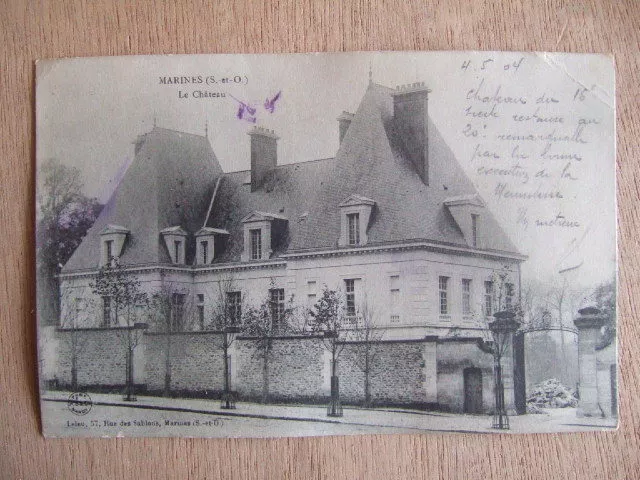 MARINES (S.-et-O.)
Le Château
4.5.04
Château du 16e
siècle restauré au
20e remarquable
par la bonne
exécution de la
Menuiserie.
Lelau, 57, Rue des Sablons, Marines (S.-et-O.)